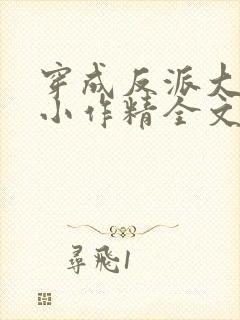 穿成反派大
小作精全文
尋飛1